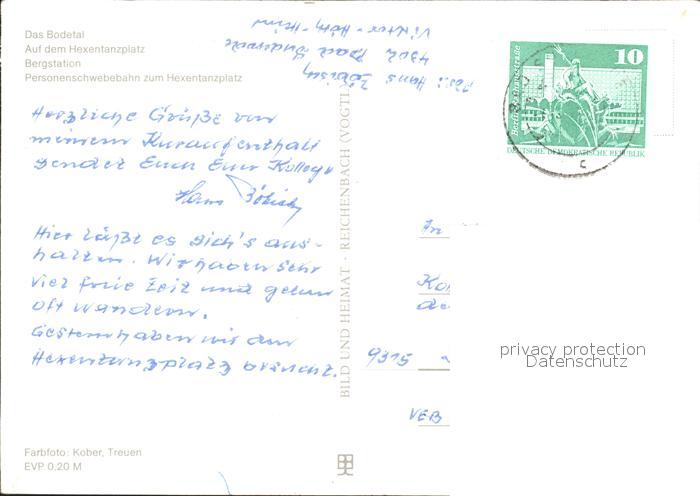 Das Bodetal
Auf dem Hexentanzplatz
Bergstation
Personenschwebebahn zum Hexentanzplatz
Abs.: Hans
4302 Bad Suderode
Viktor-
Herzliche Grüße von
meinem Kuraufenthalt
sendet Euch Euer Kollege
Hans
Hier läßt es sich's aus-
halten. Wir haben sehr
viel freie Zeit und gehen
oft wandern.
Gestern haben wir den
Hexentanzplatz besucht.
Farbfoto: Kober, Treuen
EVP 0,20 M
BILD UND HEIMAT · REICHENBACH (VOGTL
10
DEUTSCHE DEMOKRATISCHE REPUBLIK
An
9315
VEB
privacy protection
Datenschutz